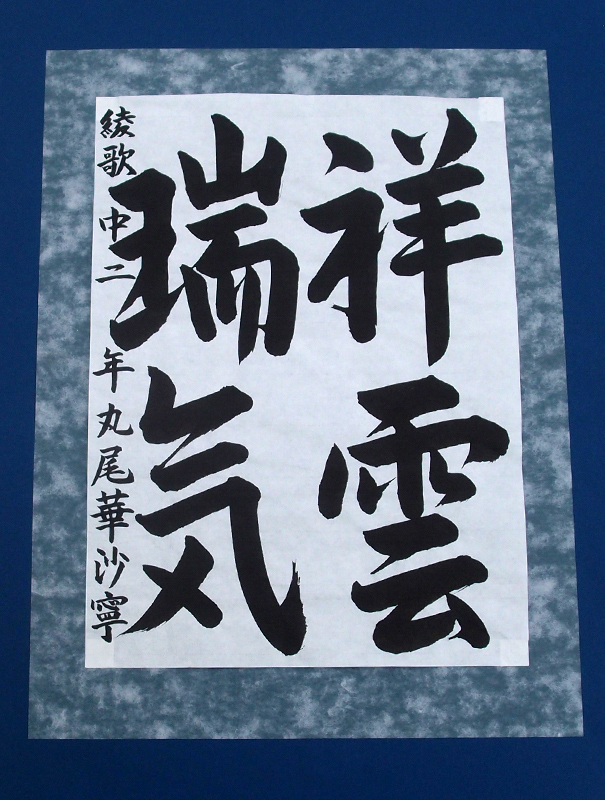 祥雲
瑞気
綾歌中二年丸尾華沙寧